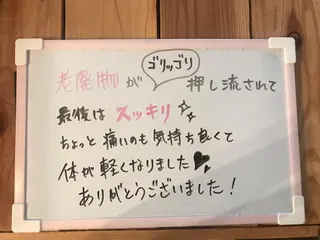 老廃物が ゴリッゴリ 押し流されて
最後は スッキリ
ちょっと痛いのも気持ち良くて
体が軽くなりました
ありがとうございました！